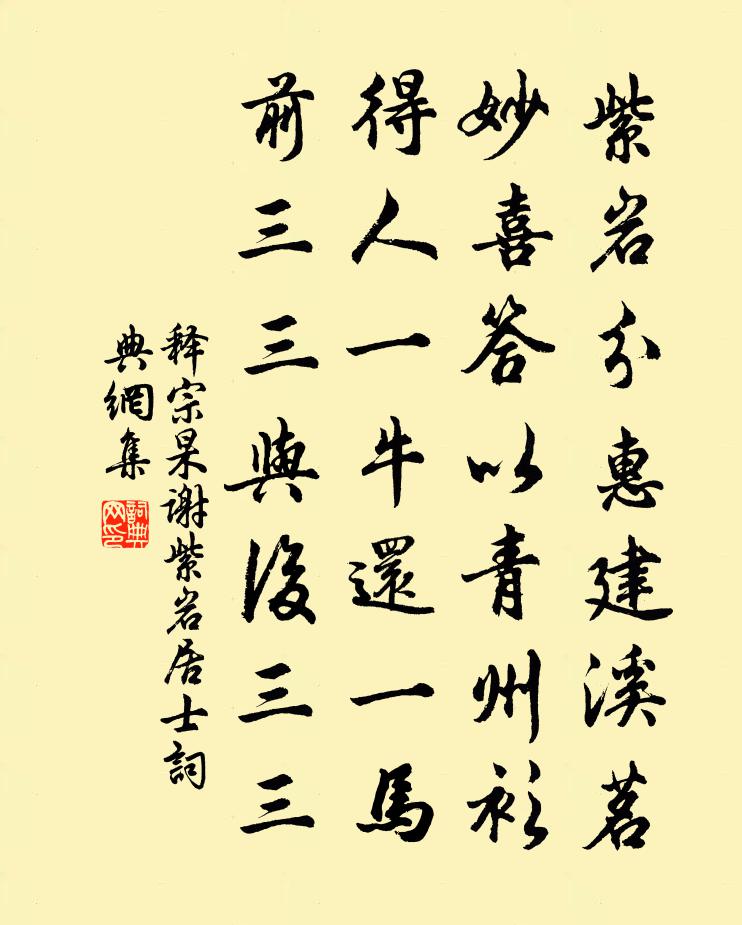 紫岩分惠建溪茗
妙喜答以青州衫
得人一牛還一馬
前三三與後三三
释宗杲谢紫岩居士詞
典網集
詞典网印